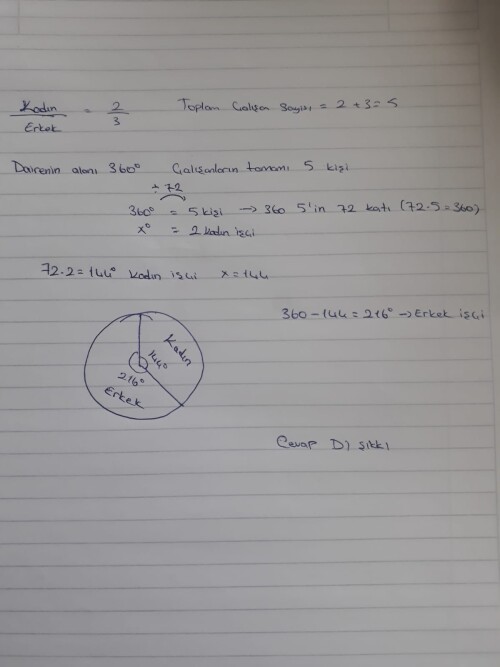 Kadın / Erkek = 2 / 3 Toplam Çalışan Sayısı = 2 + 3 = 5
Dairenin alanı 360° Çalışanların tamamı 5 kişi
÷ 72
360° = 5 kişi → 360 5'in 72 katı (72.5 = 360)
x° = 2 kadın işçi
72.2 = 144° kadın işçi x = 144
360 - 144 = 216° → Erkek işçi
Kadın
144°
216°
Erkek
Cevap D) şıkkı